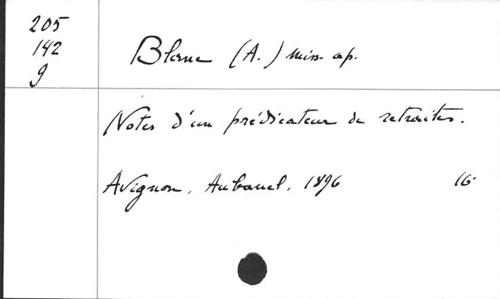 205
142
9
Blanc (A.) miss. ap.
Notes d'un prédicateur de retraites.
Avignon, Aubanel, 1896 16